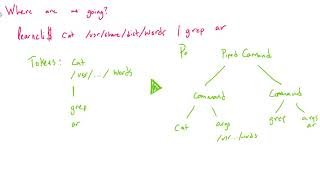 Where are we going?
pearce$ cat /usr/share/dict/words | grep ar
Tokens: Cat
/usr/.../ words
|
grep
ar
Piped Command
Command
Command
Cat
args
/usr/...words
grep
args
ar